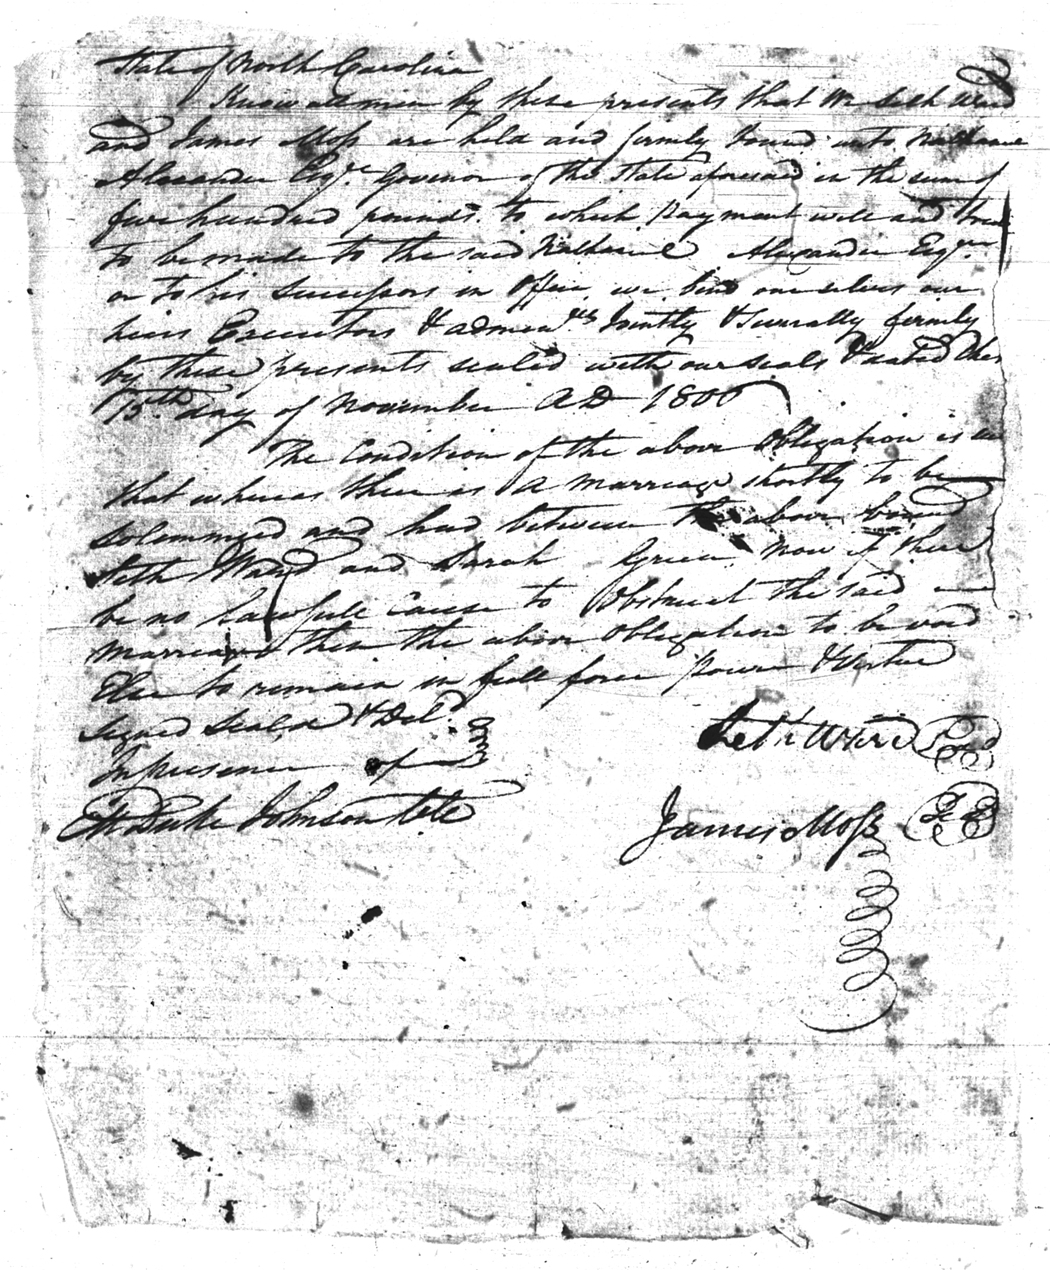 State of North Carolina
Know all men by these presents that we Seth Ward
and James Moss are held and firmly bound unto Nathanie
Alexander Esqr. Govenor of the State aforesaid in the sum of
five hundred pounds. to which payment well and true
to be made to the said Nathaniel Alexander Esqr.
or to his Successors in Office we bind ourselves our
heirs Executors & admin Jointly & Severally firmly
by these presents sealed with our seals & dated this
day of November AD
The Condition of the above Obligation is
that whereas there is a marriage shortly to be
Solemnized and had between the above bound
Seth Ward and Sarah Green Now if there
be no lawfull Cause to Obstruct the said
marriage then the above Obligation to be void
Else to remain in full force power & Vertue
Signed Sealed & Deld.
In presence of
Duke Johnson
Seth Ward
James Moss